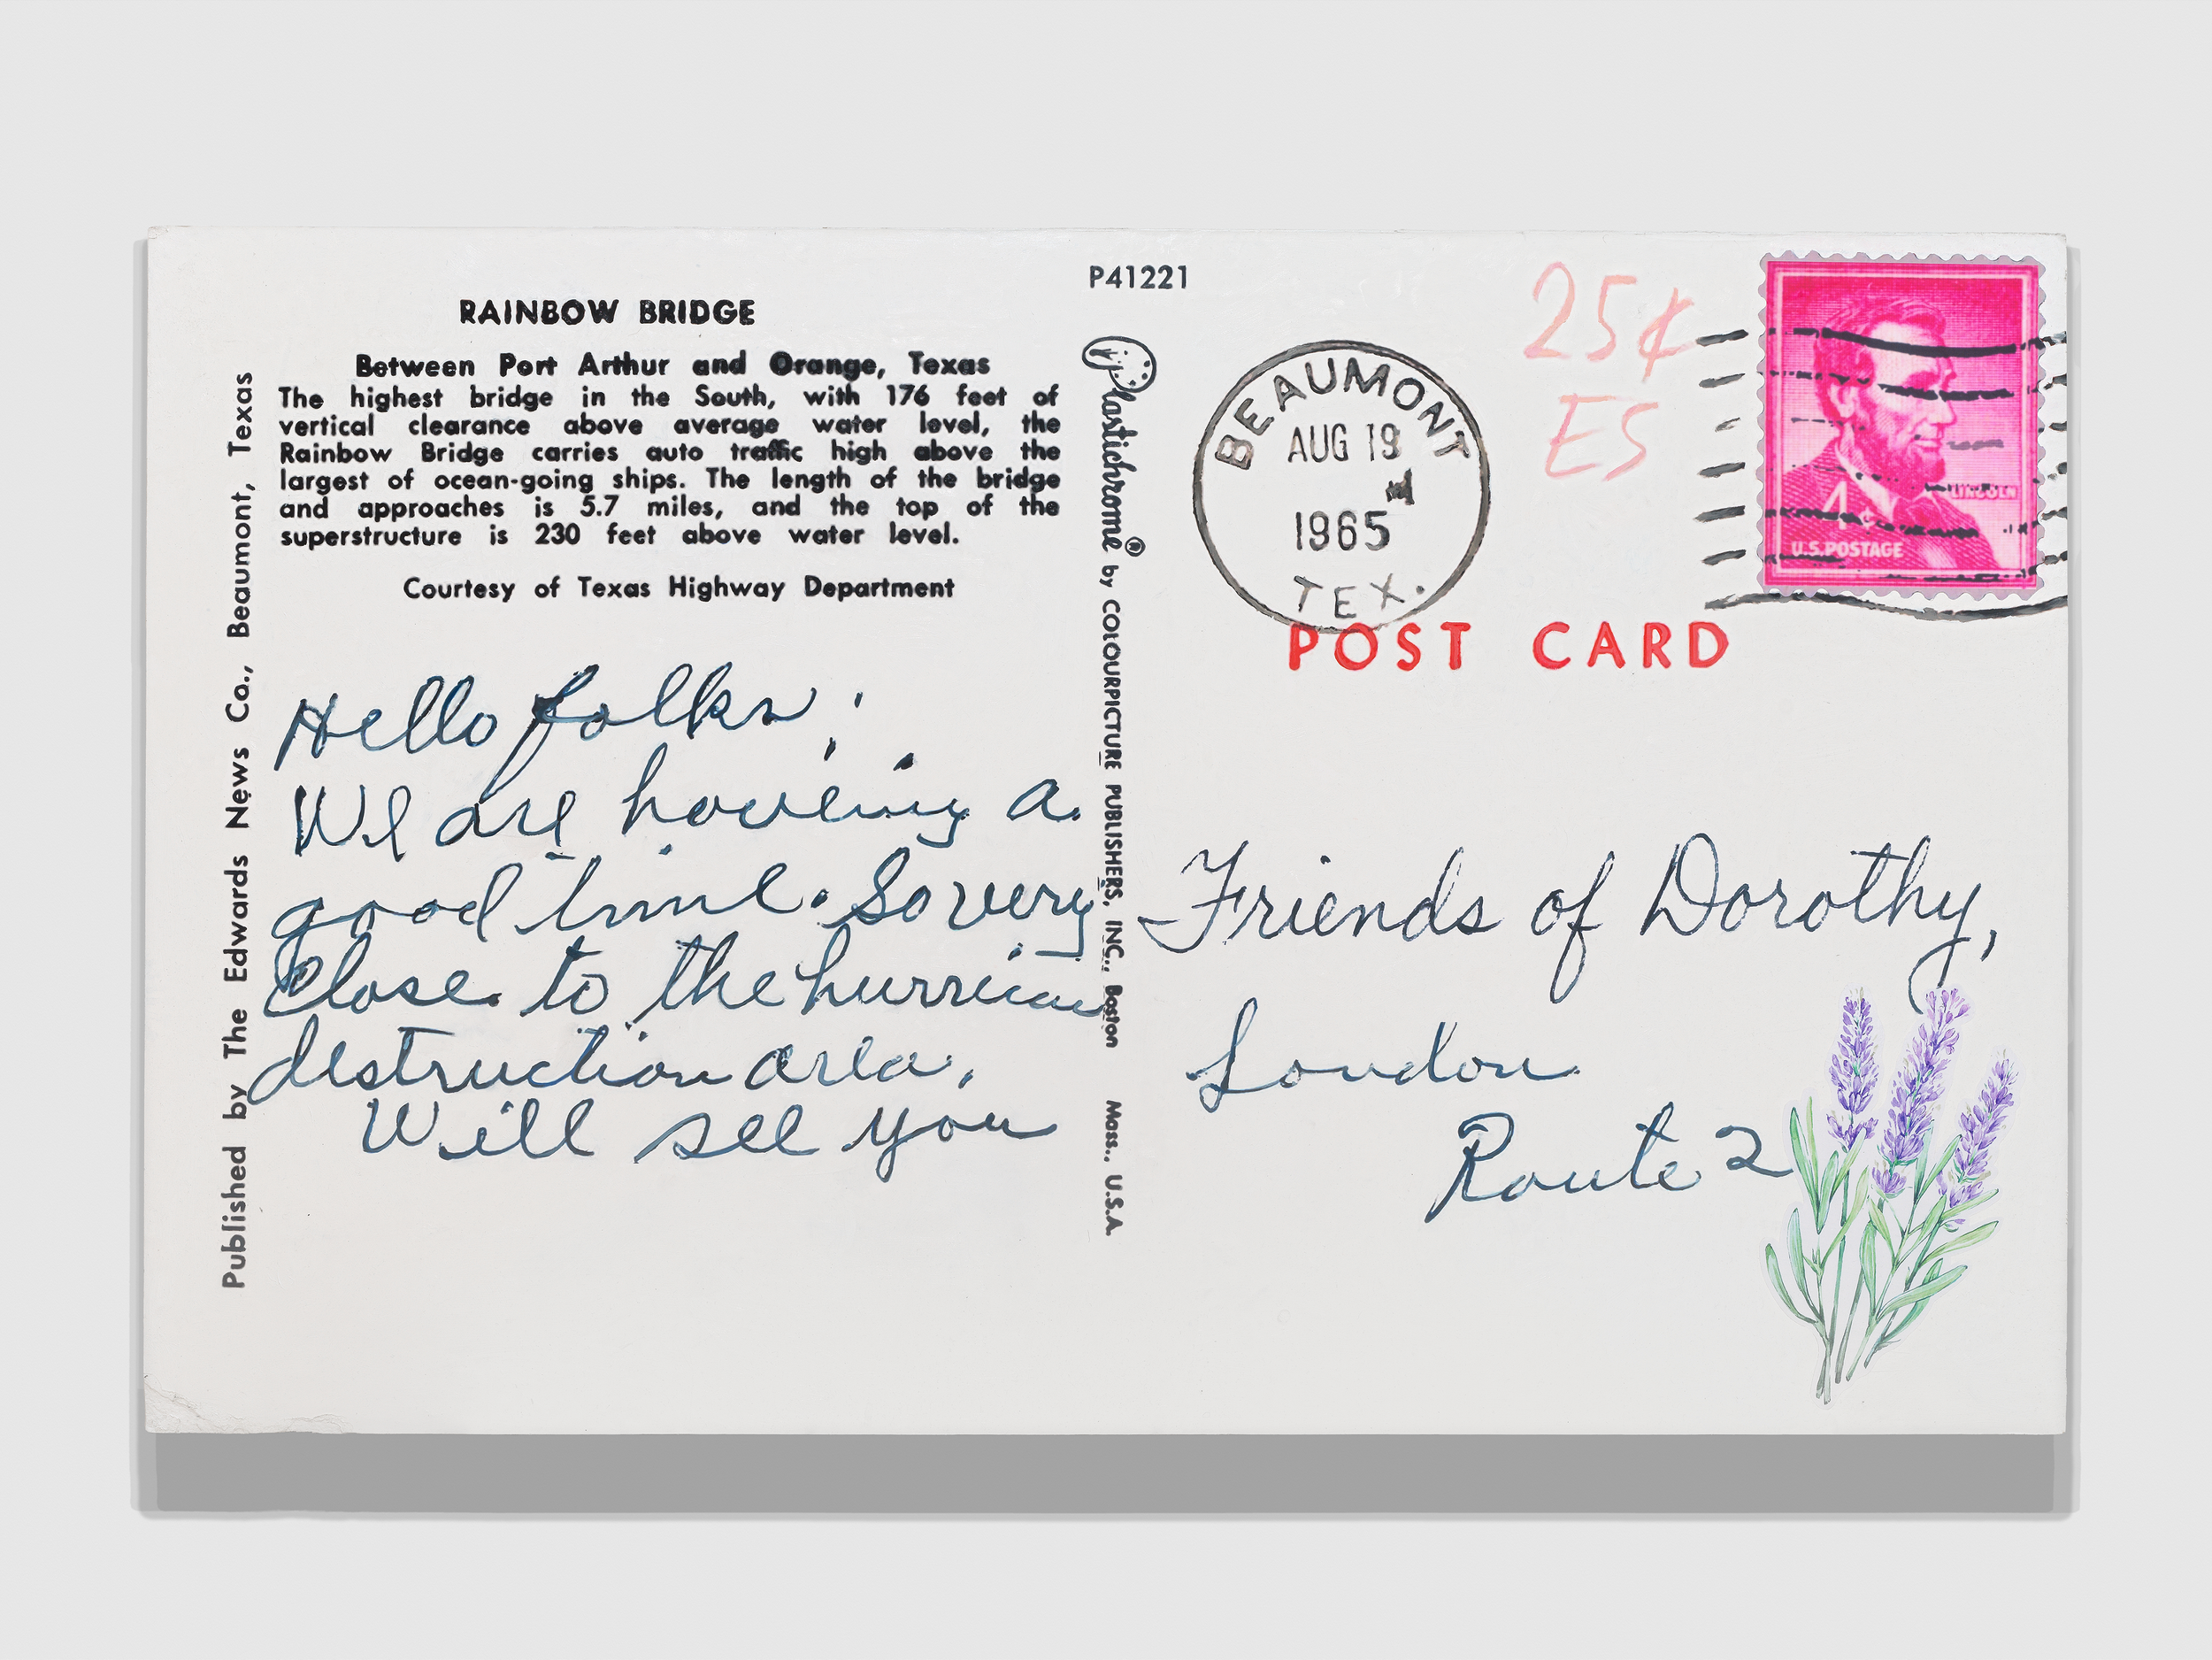 P41221
RAINBOW BRIDGE
Between Port Arthur and Orange, Texas
The highest bridge in the South, with 176 feet of
vertical clearance above average water level, the
Rainbow Bridge carries auto traffic high above the
largest of ocean-going ships. The length of the bridge
and approaches is 5.7 miles, and the top of the
superstructure is 230 feet above water level.
Courtesy of Texas Highway Department
Published by The Edwards News Co., Beaumont, Texas
Hello folks;
We are having a
good time. So very
close to the hurrican
destruction area.
Will see you
Plastichrome® by COLOURPICTURE PUBLISHERS, INC., Boston Mass., U.S.A.
BEAUMONT
AUG 19
1965
TEX.
25¢
ES
LINCOLN
4¢
U.S. POSTAGE
POST CARD
Friends of Dorothy,
London
Route 2